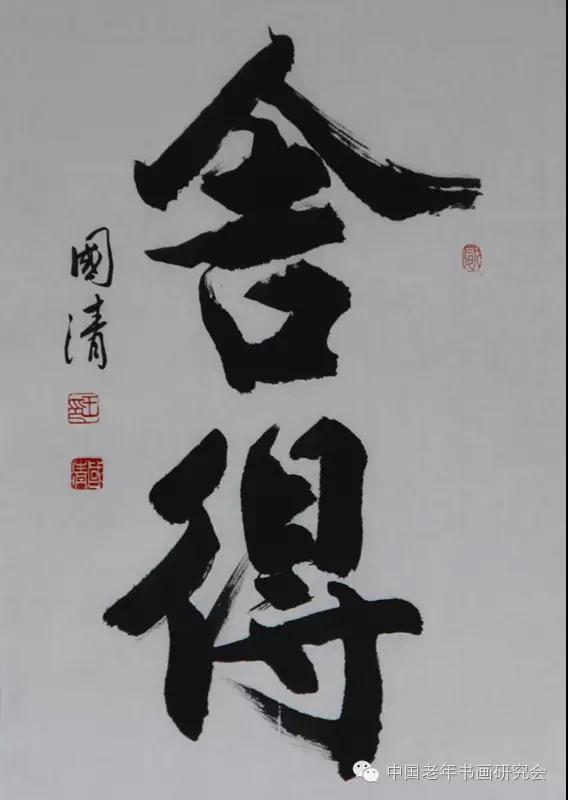 舍得
國清
中国老年书画研究会